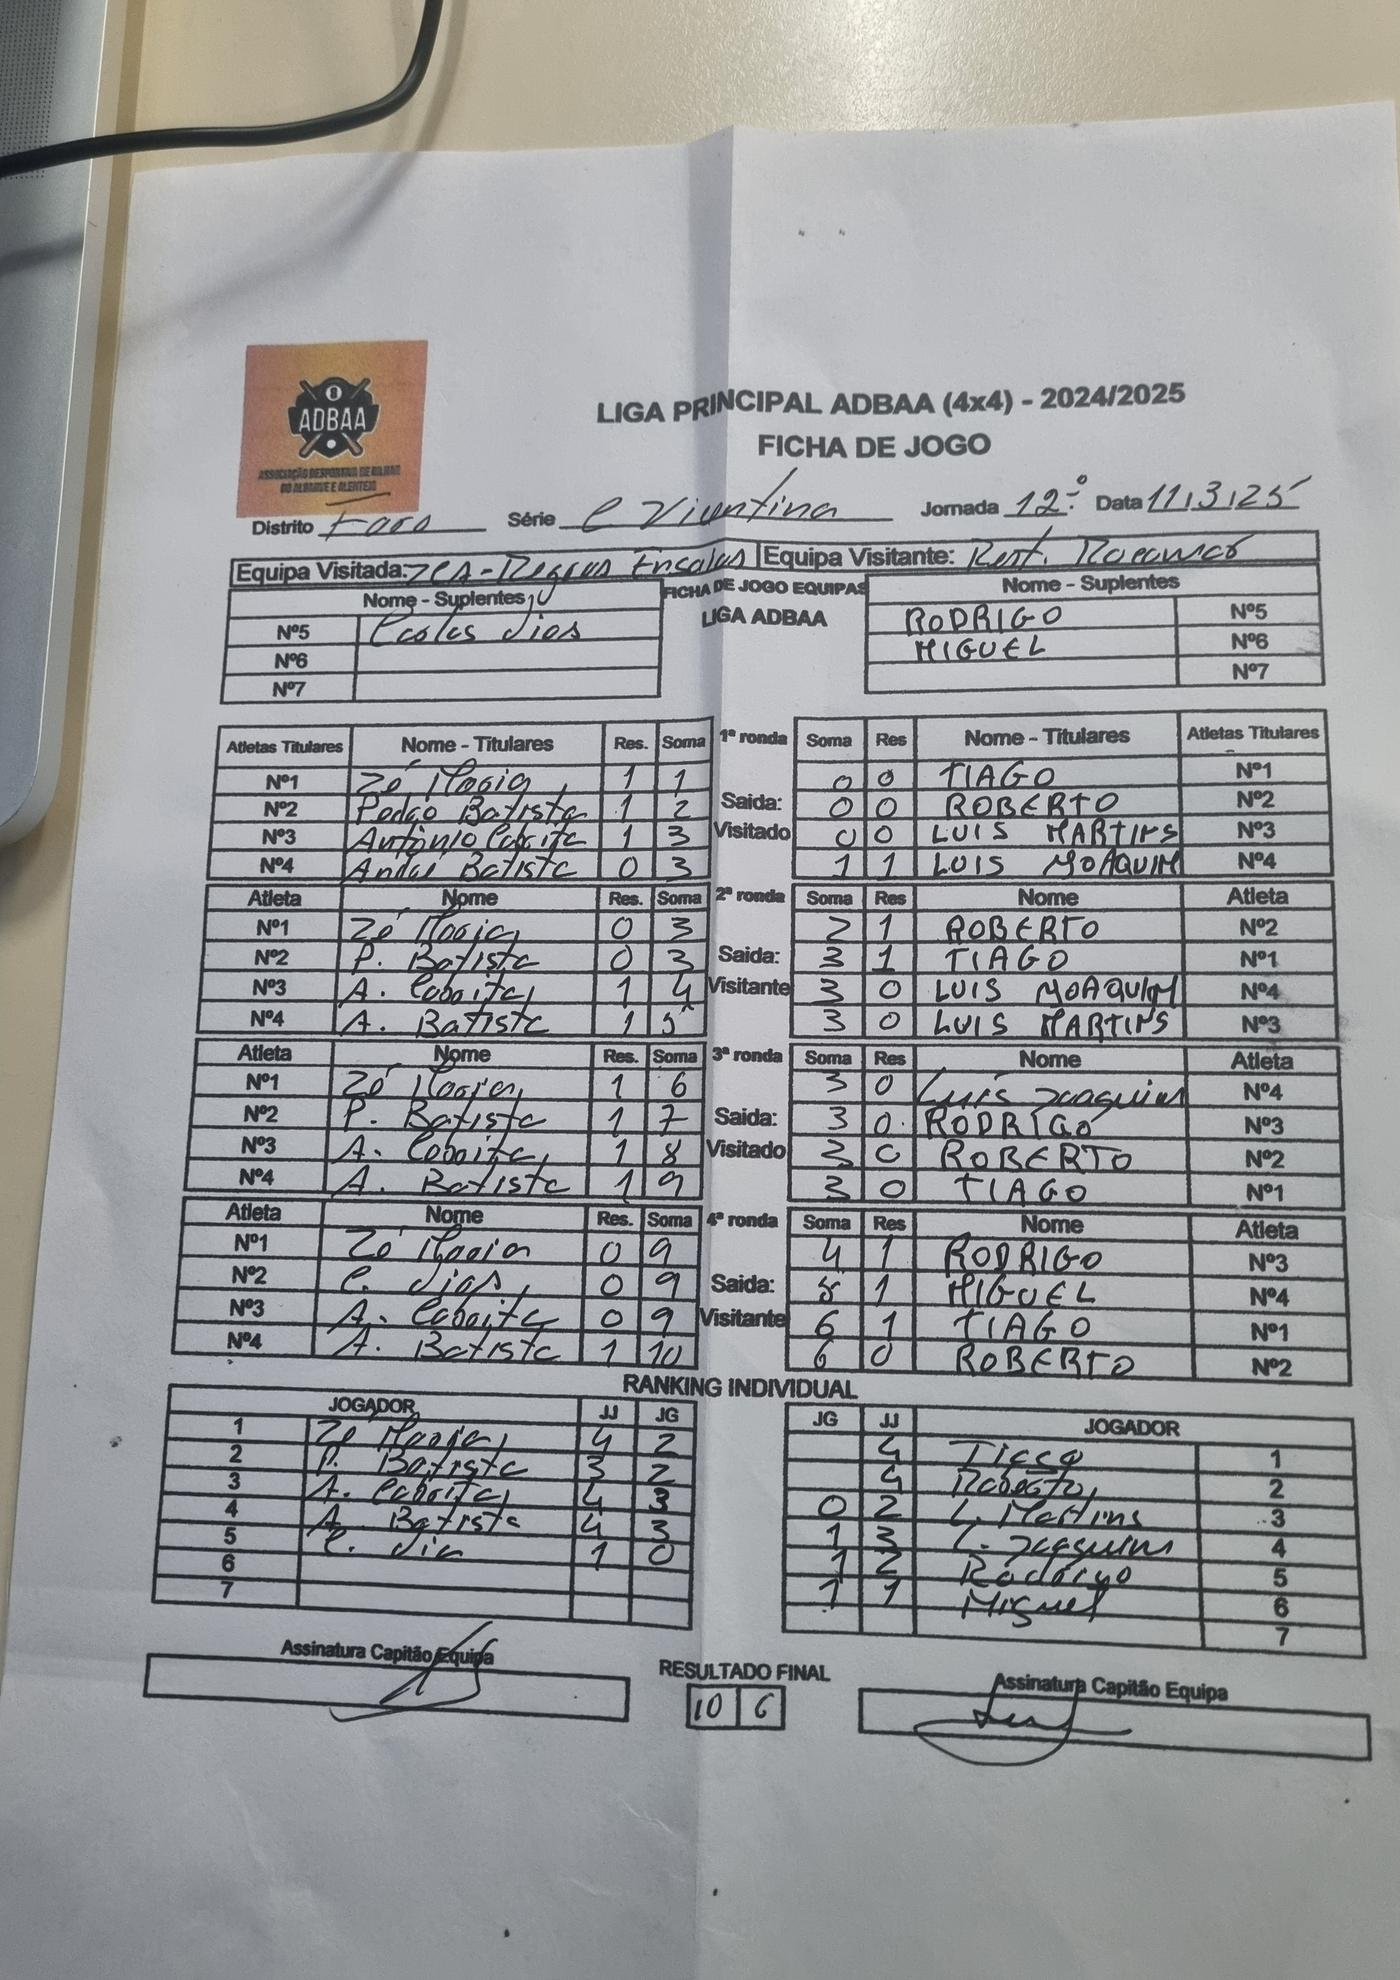 8
ADBAA
ASSOCIAÇÃO DESPORTIVA DE BILHAR
DO ALGARVE E ALENTEJO
LIGA PRINCIPAL ADBAA (4x4) - 2024/2025
FICHA DE JOGO
Distrito Faro Série C. Vicentina Jornada 12ª Data 11,3,25
Equipa Visitada: Equipa Visitante: Rest.
Nome - Suplentes FICHA DE JOGO EQUIPAS Nome - Suplentes
Nº5 Carlos Dias LIGA ADBAA RODRIGO Nº5
Nº6 MIGUEL Nº6
Nº7 Nº7
Atletas Titulares Nome - Titulares Res. Soma 1ª ronda Soma Res Nome - Titulares Atletas Titulares
Nº1 Zé Maria 1 1 0 0 TIAGO Nº1
Nº2 Pedro Batista 1 2 Saida: 0 0 ROBERTO Nº2
Nº3 António Cabrita 1 3 Visitado 0 0 LUIS MARTINS Nº3
Nº4 André Batista 0 3 1 1 LUIS JOAQUIM Nº4
Atleta Nome Res. Soma 2ª ronda Soma Res Nome Atleta
Nº1 Zé Maria 0 3 2 1 ROBERTO Nº2
Nº2 P. Batista 0 3 Saida: 3 1 TIAGO Nº1
Nº3 A. Cabrita 1 4 Visitante 3 0 LUIS JOAQUIM Nº4
Nº4 A. Batista 1 5 3 0 LUIS MARTINS Nº3
Atleta Nome Res. Soma 3ª ronda Soma Res Nome Atleta
Nº1 Zé Maria 1 6 3 0 Luís Joaquim Nº4
Nº2 P. Batista 1 7 Saida: 3 0 RODRIGO Nº3
Nº3 A. Cabrita 1 8 Visitado 3 0 ROBERTO Nº2
Nº4 A. Batista 1 9 3 0 TIAGO Nº1
Atleta Nome Res. Soma 4ª ronda Soma Res Nome Atleta
Nº1 Zé Maria 0 9 4 1 RODRIGO Nº3
Nº2 C. Dias 0 9 Saida: 5 1 MIGUEL Nº4
Nº3 A. Cabrita 0 9 Visitante 6 1 TIAGO Nº1
Nº4 A. Batista 1 10 6 0 ROBERTO Nº2
RANKING INDIVIDUAL
JOGADOR JJ JG JG JJ JOGADOR
1 Zé Maria 4 2 4 Tiago 1
2 P. Batista 3 2 4 Roberto 2
3 A. Cabrita 4 3 0 2 L. Martins 3
4 A. Batista 4 3 1 3 L. Joaquim 4
5 C. Dia 1 0 1 2 Rodrigo 5
6 1 1 Miguel 6
7 7
Assinatura Capitão Equipa RESULTADO FINAL Assinatura Capitão Equipa
10 6